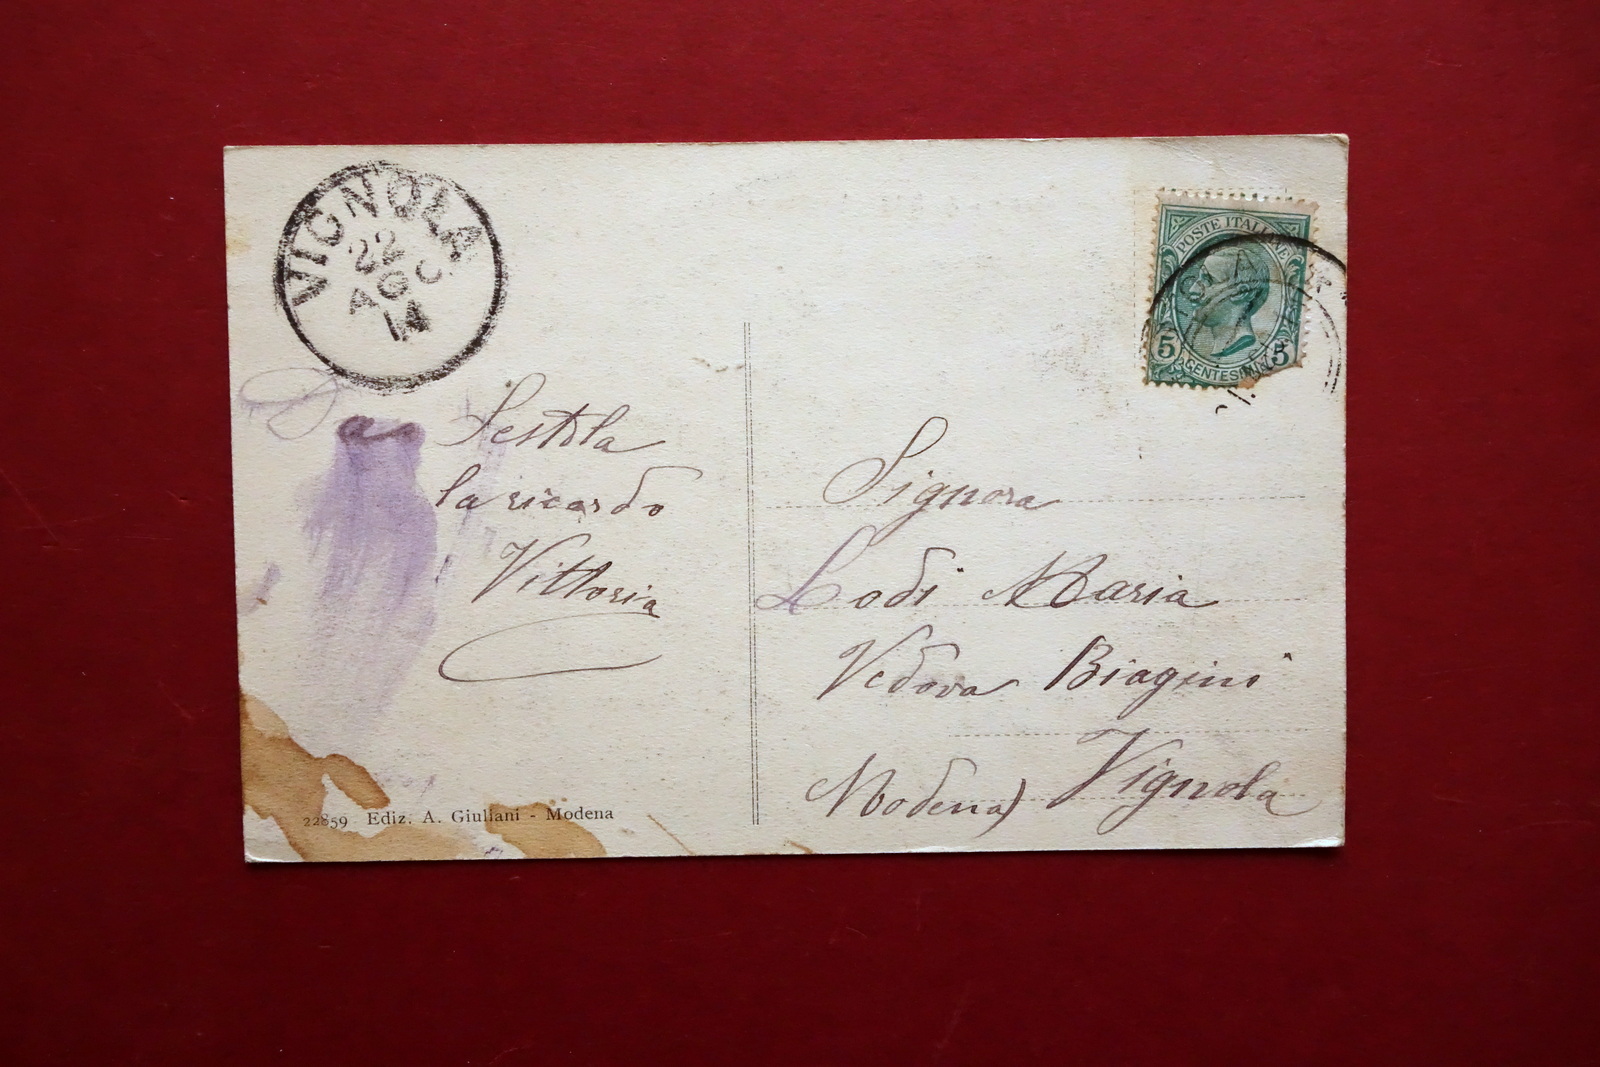 VIGNOLA
22
AGO
14
POSTE ITALIANE
5 5
CENTESIMI
Da Sestola
la ricordo
Vittoria
Signora
Lodi Maria
Vedova Biagini
Vignola
Modena)
22859 Ediz. A. Giuliani - Modena